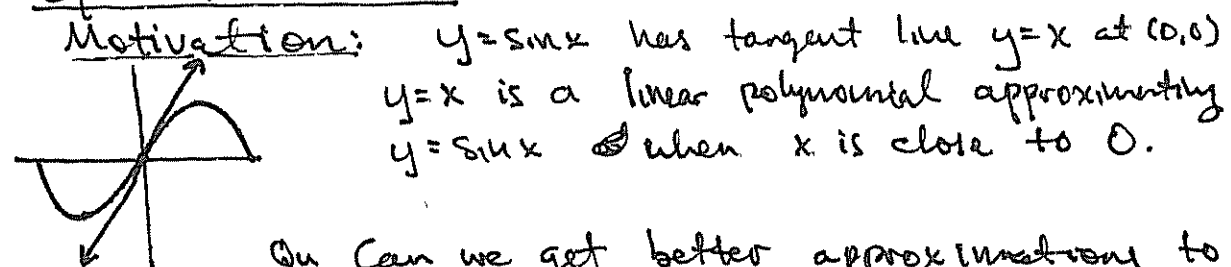 Motivation: y=sinx has tangent line y=x at (0,0)
y=x is a linear polynomial approximating
y=sinx when x is close to 0.
Qu Can we get better approximations to